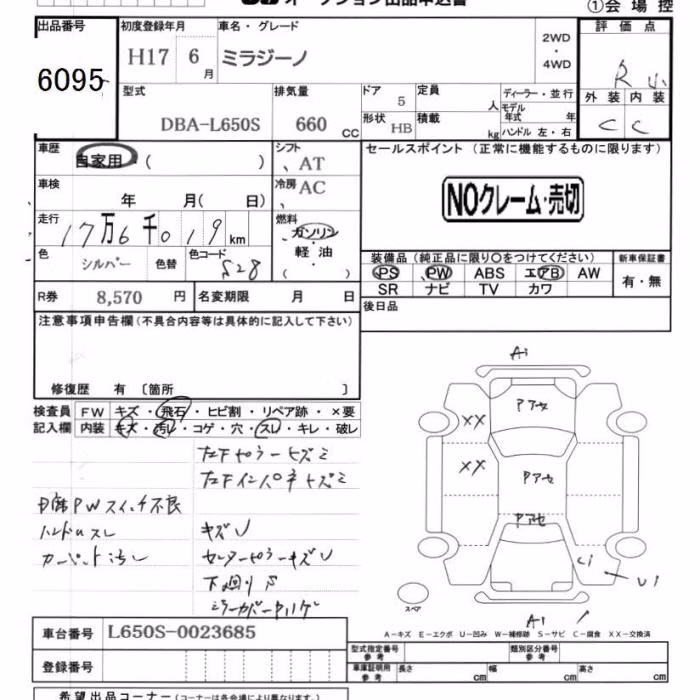 オークション出品申込書
①会場控
出品番号
6095
初度登録年月
H17 6月
車名・グレード
ミラジーノ
2WD
・
4WD
評価点
R 小
外装 内装
C C
型式
DBA-L650S
排気量
660 cc
ドア 5
形状 HB
定員 人
積載 kg
ディーラー・並行
モデル年式 年
ハンドル 左・右
車歴
自家用・( )
シフト
AT
車検
年 月( 日)
冷房
AC
走行
17万6千019km
燃料
ガソリン
軽油
( )
色
シルバー
色替
色コード
S28
R券 8,570 円
名変期限 月 日
セールスポイント (正常に機能するものに限ります)
NOクレーム・売切
装備品 (純正品に限り○をつけてください)
PS PW ABS エアB AW
SR ナビ TV カワ
新車保証書
有・無
後日品
注意事項申告欄(不具合内容等は具体的に記入して下さい)
修復歴 有 〔箇所 〕
検査員記入欄
FW キズ・飛石・ヒビ割・リペア跡・×要
内装 キズ・汚レ・コゲ・穴・スレ・キレ・破レ
PWスイッチ不良
ハンドルスレ
カーペット汚レ
キズU
センターピラーキズU
下廻りS
A1
Pアセ
XX
Pアセ
XX
Pアセ
C1
U1
A1
スペア
A-キズ E-エクボ U-凹み W-補修跡 S-サビ C-腐食 XX-交換済
車台番号 L650S-0023685
登録番号
型式指定番号 参考
類別区分番号 参考
車庫証明用 参考
長さ cm
幅 cm
高さ cm
希望出品コーナー(コーナーは各会場により異なります。)